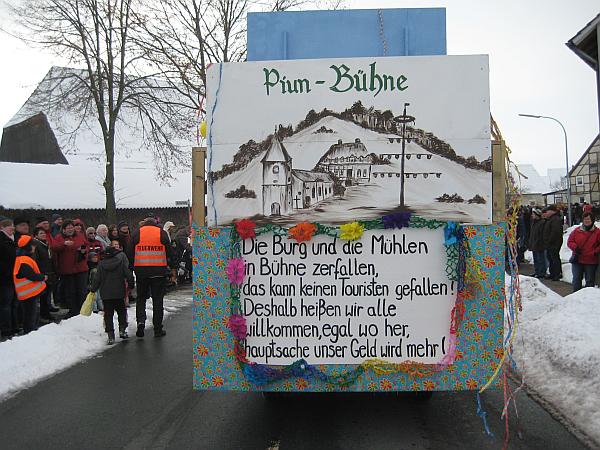 Piun-Bühne
Die Burg und die Mühlen
in Bühne zerfallen,
das kann keinen Touristen gefallen!
Deshalb heißen wir alle
willkommen, egal wo her,
hauptsache unser Geld wird mehr!
FEUERWEHR